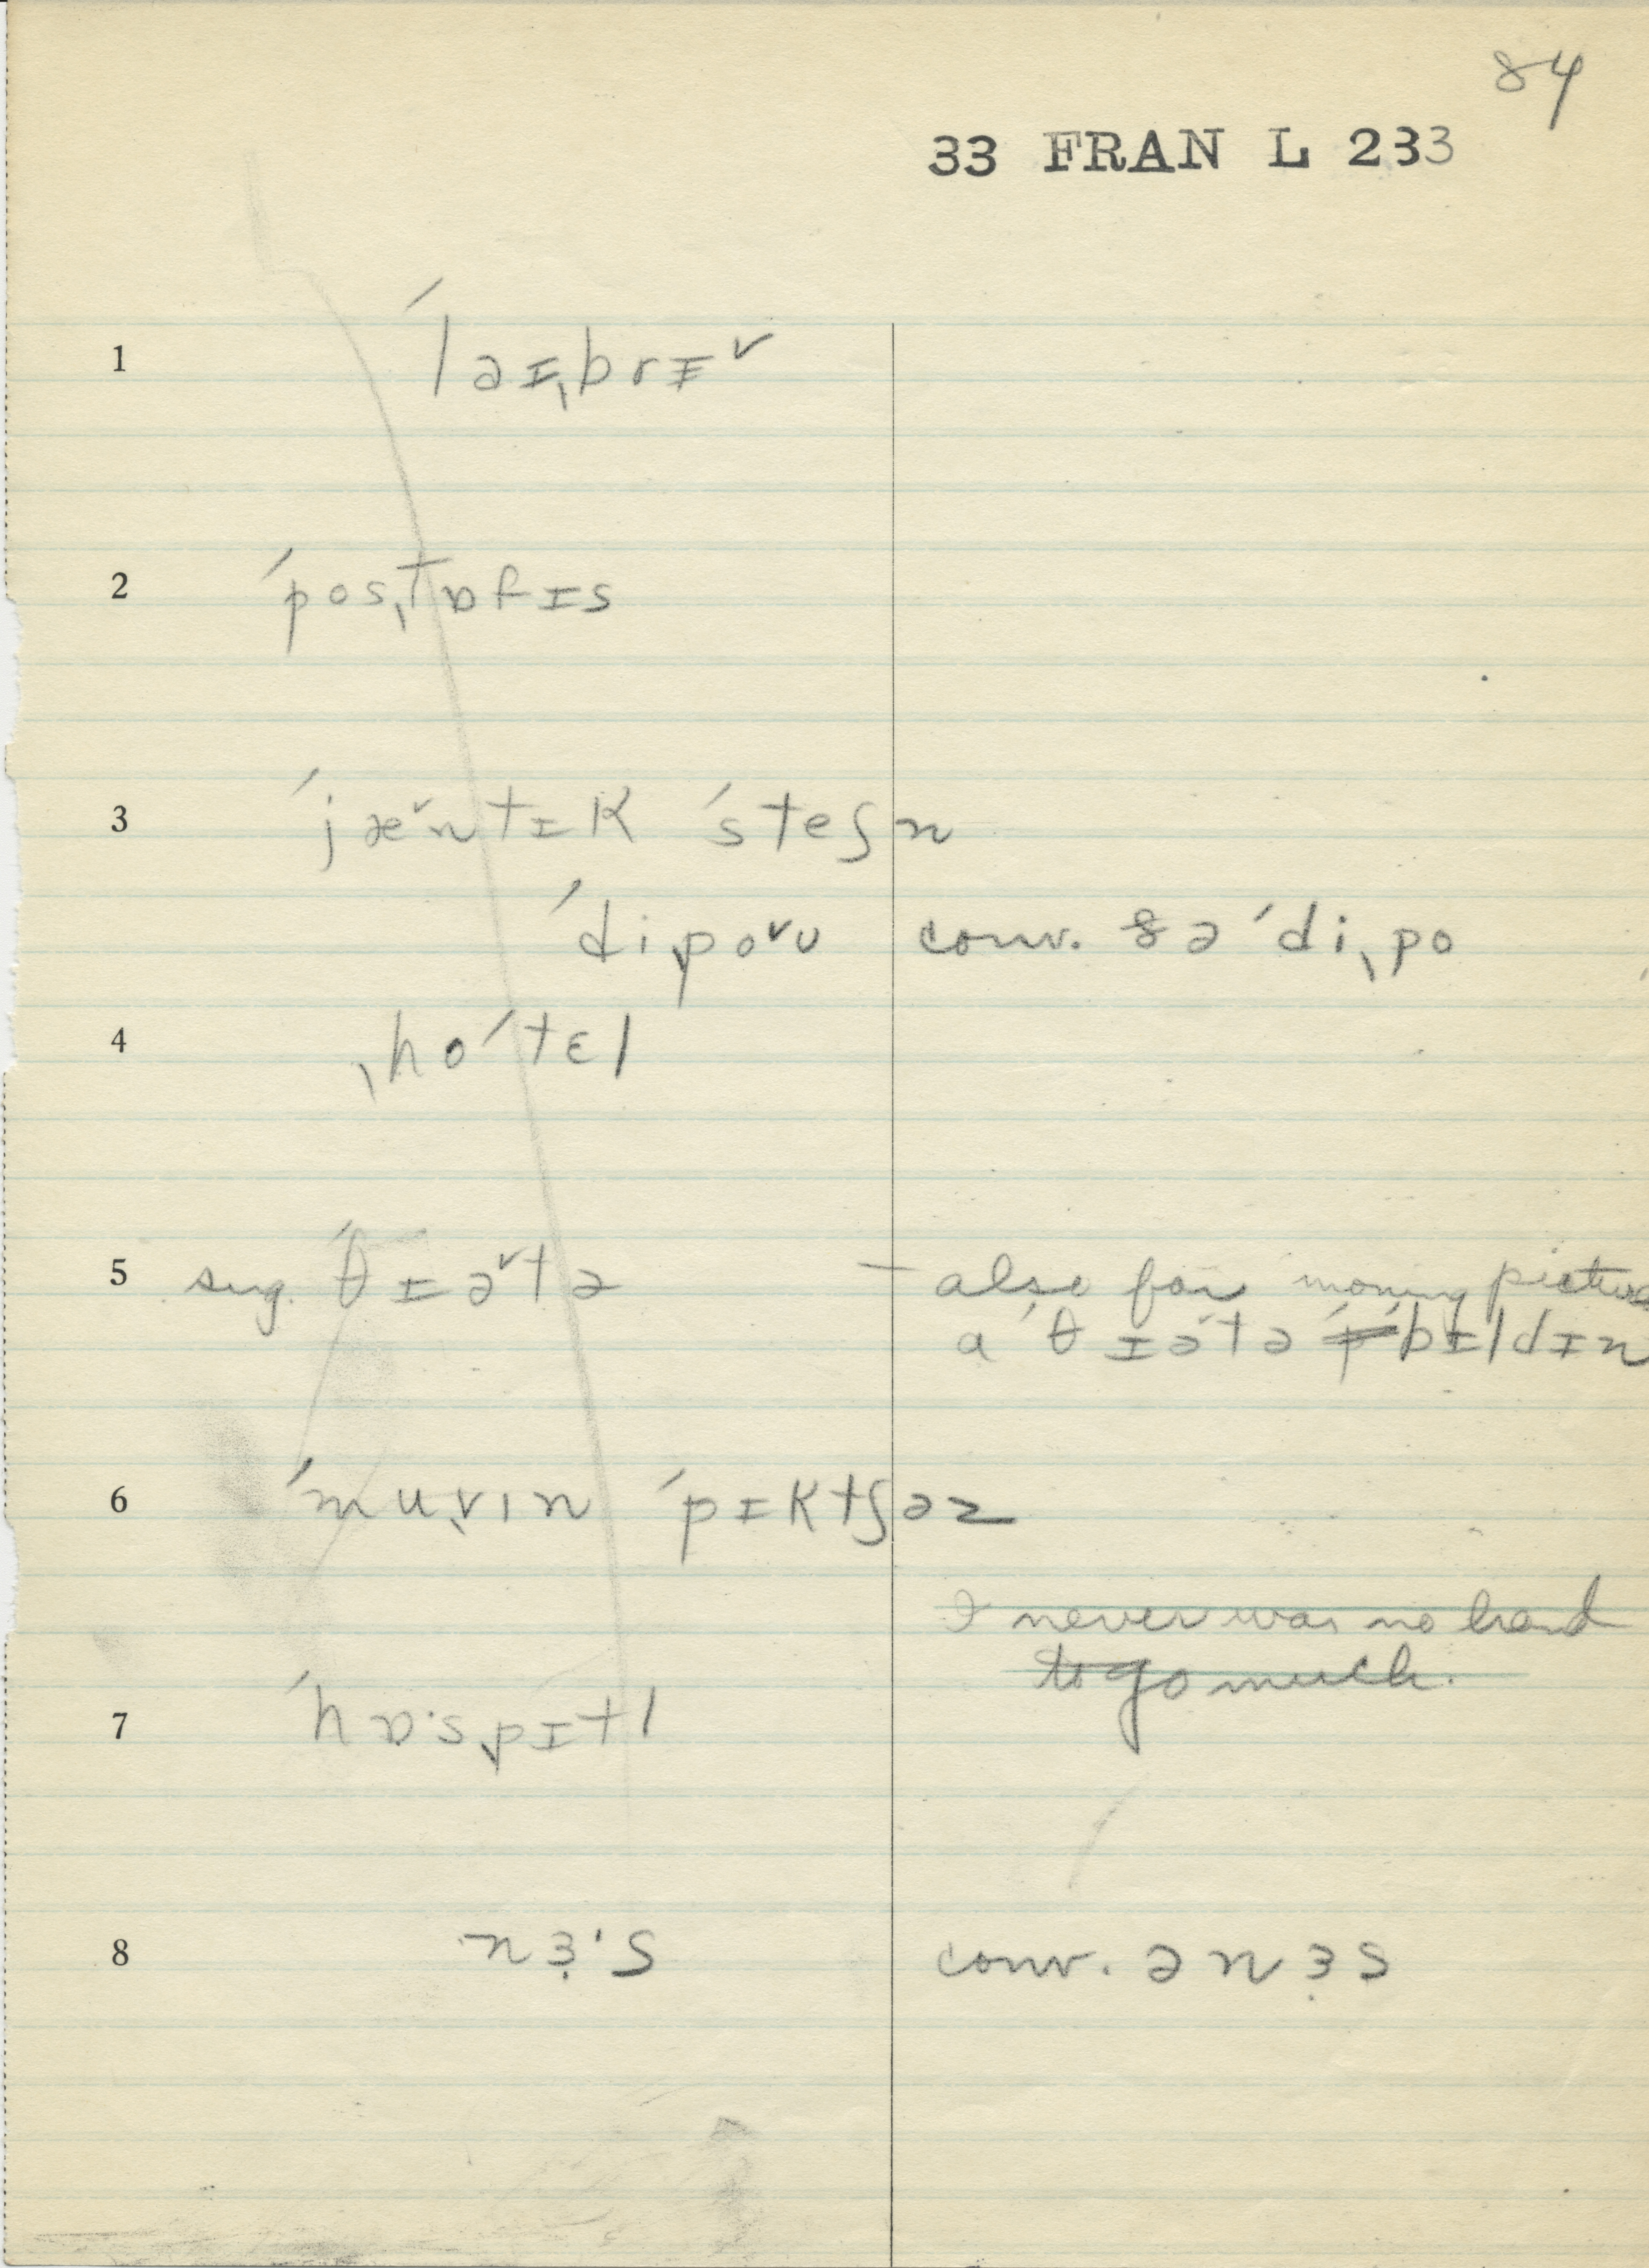 84
33 FRAN L 233
1 ˊlaɪˎbrɪ˅
2 ˊposˎtɒfɪs
3 ˊjæ˅ntɪk ˊsteʃn
ˊdiˎpo˅ʊ conv. ðəˊdiˎpo
4 ˎhoˊtɛl
5 sug. ˊθɪə˅tə – also for moving picture
aˊθɪəˊtə ˊbɪldɪn
6 ˊmuˎvin ˊpɪktʃəz
I never was no hand
to go much.
7 ˊhɒ·sˎpɪtl
8 nɜ̣·s conv. ənɜ̣s